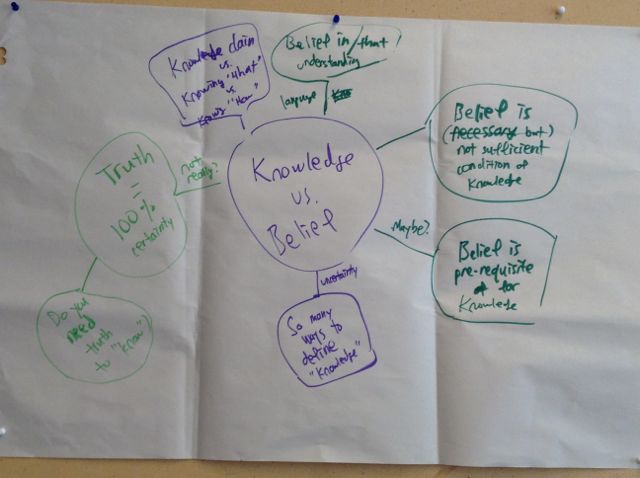 Knowledge claim
vs.
Knowing "that"
vs
Knows "How"
Belief in/that
understanding
language
Belief is
(necessary but)
not sufficient
condition of
Knowledge
Truth
=
100%
certainty
not
really?
Knowledge
vs.
Belief
Maybe?
Belief is
pre-requisite
for
Knowledge
uncertainty
So many
ways to
define
"Knowledge"
Do you
need
truth
to "know"?